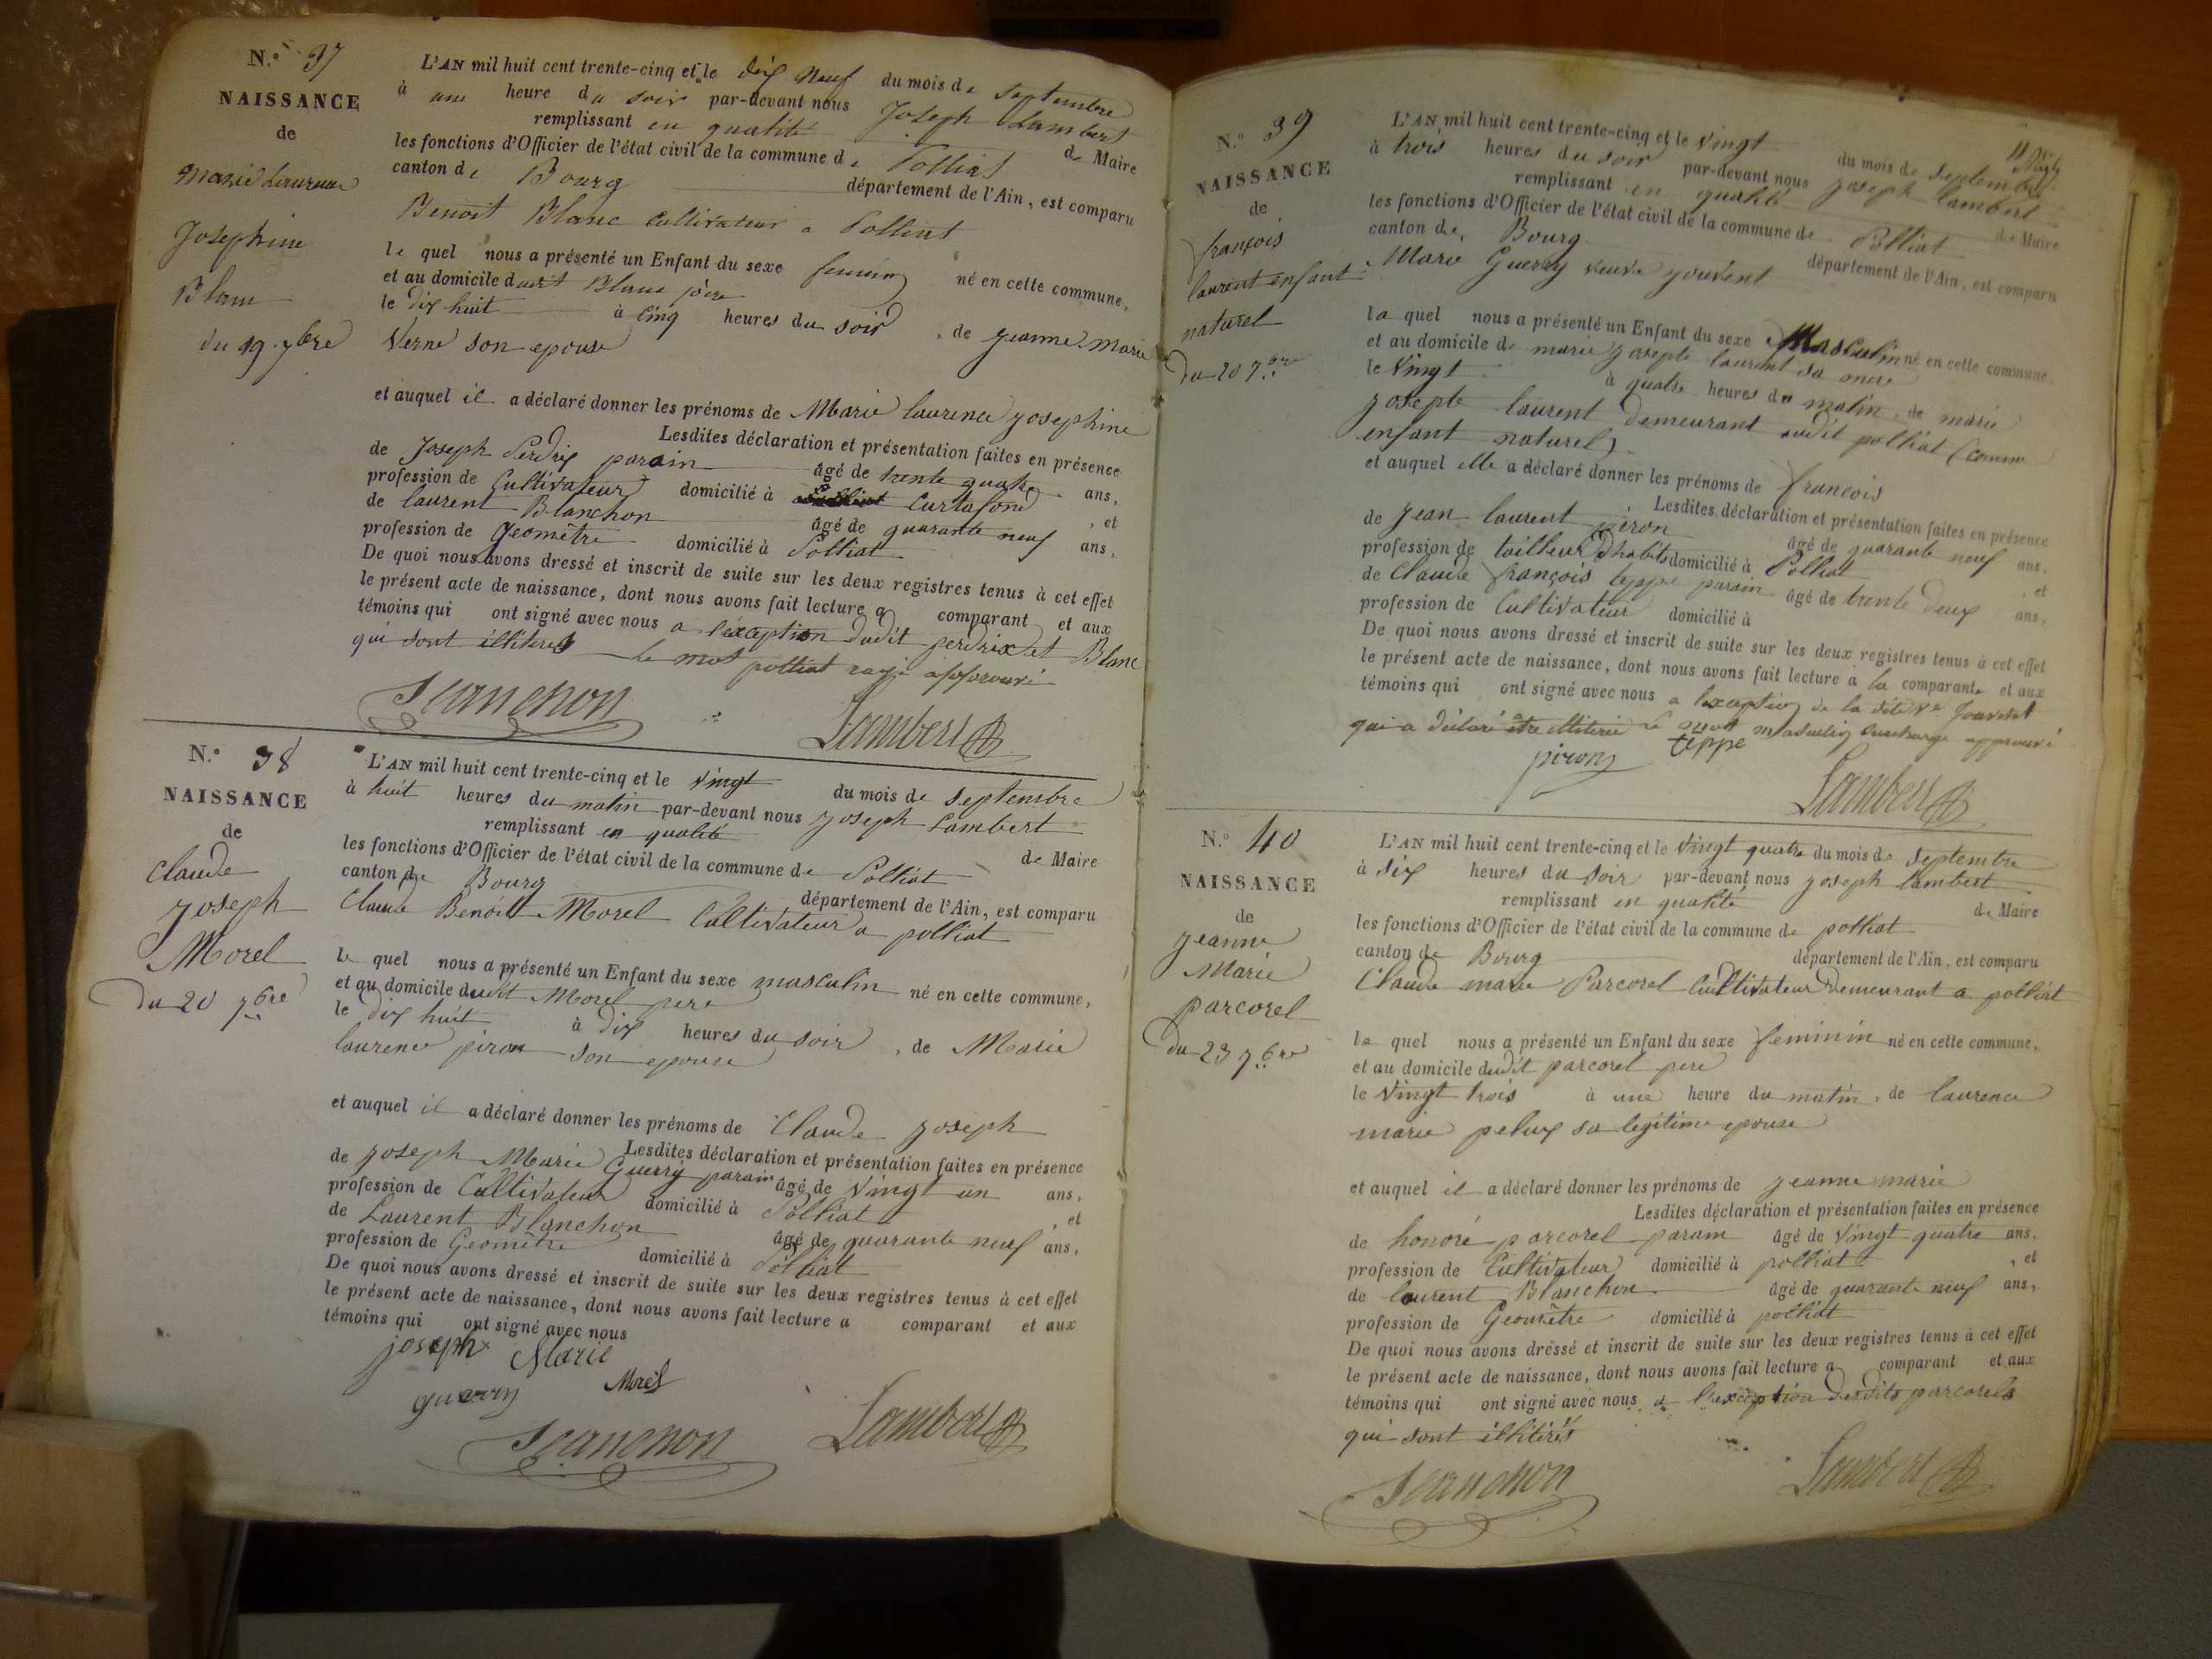 N.º 37
NAISSANCE
de
Marie Laurence
Josephine
Blanc
du 19 7bre
L'AN mil huit cent trente-cinq et le dix neuf du mois de septembre
à une heure du soir par-devant nous Joseph Lambert
remplissant en qualité de Maire
les fonctions d'Officier de l'état civil de la commune de Polliat
canton de Bourg département de l'Ain, est comparu
Benoit Blanc Cultivateur a Polliat
le quel nous a présenté un Enfant du sexe feminin né en cette commune,
et au domicile dudit Blanc père
le dix huit à cinq heures du soir, de jeanne marie
Verne son epouse
et auquel il a déclaré donner les prénoms de Marie laurence josephine
Lesdites déclaration et présentation faites en présence
de Joseph Perdrix parain âgé de trente quatre ans,
profession de Cultivateur domicilié à Curtafond, et
de laurent Blanchon âgé de quarante neuf ans,
profession de Geomètre domicilié à Polliat
De quoi nous avons dressé et inscrit de suite sur les deux registres tenus à cet effet
le présent acte de naissance, dont nous avons fait lecture a comparant et aux
témoins qui ont signé avec nous a l'exception dudit perdrix et Blanc
qui sont illiterés le mot polliat rayé approuvé
Blanchon Lambert
N.º 38
NAISSANCE
de
Claude
joseph
Morel
du 20 7bre
L'AN mil huit cent trente-cinq et le vingt du mois de septembre
à huit heures du matin par-devant nous joseph Lambert
remplissant en qualité de Maire
les fonctions d'Officier de l'état civil de la commune de Polliat
canton de Bourg département de l'Ain, est comparu
Claude Benoit Morel Cultivateur a polliat
le quel nous a présenté un Enfant du sexe masculin né en cette commune,
et au domicile dudit Morel pere
le dix huit à dix heures du soir, de Marie
laurence piron son epouse
et auquel il a déclaré donner les prénoms de Claude joseph
Lesdites déclaration et présentation faites en présence
de joseph Marie Guerry parain âgé de vingt un ans,
profession de Cultivateur domicilié à Polliat, et
de Laurent Blanchon âgé de quarante neuf ans,
profession de Geomètre domicilié à Polliat
De quoi nous avons dressé et inscrit de suite sur les deux registres tenus à cet effet
le présent acte de naissance, dont nous avons fait lecture a comparant et aux
témoins qui ont signé avec nous
joseph Marie
guerry Morel
Blanchon Lambert
N.º 39
NAISSANCE
de
françois
laurent enfant
naturel
du 20 7bre
L'AN mil huit cent trente-cinq et le vingt du mois de septembre
à trois heures du soir par-devant nous joseph Lambert
remplissant en qualité de Maire
les fonctions d'Officier de l'état civil de la commune de Polliat
canton de Bourg département de l'Ain, est comparu
Marie Guerry veuve jouvent
la quel nous a présenté un Enfant du sexe Masculin né en cette commune,
et au domicile de marie josepte laurent sa mere
le vingt à quatre heures du matin, de marie
josepte laurent demeurant audit polliat (comme
enfant naturel)
et auquel elle a déclaré donner les prénoms de françois
Lesdites déclaration et présentation faites en présence
de jean laurent piron âgé de quarante neuf ans,
profession de tailleur d'habits domicilié à Polliat, et
de Claude françois teppe parain âgé de trente deux ans,
profession de Cultivateur domicilié à
De quoi nous avons dressé et inscrit de suite sur les deux registres tenus à cet effet
le présent acte de naissance, dont nous avons fait lecture à la comparante et aux
témoins qui ont signé avec nous a l'exception de la dite ve Jouvent
qui a déclaré etre illiterée le mot masculin surchargé approuvé
piron teppe
Lambert
N.º 40
NAISSANCE
de
jeanne
Marie
parcorel
du 23 7bre
L'AN mil huit cent trente-cinq et le vingt quatre du mois de septembre
à six heures du soir par-devant nous joseph lambert
remplissant en qualité de Maire
les fonctions d'Officier de l'état civil de la commune de polliat
canton de Bourg département de l'Ain, est comparu
Claude marie Parcorel Cultivateur demeurant a polliat
le quel nous a présenté un Enfant du sexe feminin né en cette commune,
et au domicile dudit parcorel pere
le vingt trois à une heure du matin, de laurence
marie pelux sa legitime epouse
et auquel il a déclaré donner les prénoms de jeanne marie
Lesdites déclaration et présentation faites en présence
de honoré parcorel parain âgé de vingt quatre ans,
profession de Cultivateur domicilié à polliat, et
de laurent Blanchon âgé de quarante neuf ans,
profession de Geomètre domicilié à polliat
De quoi nous avons dressé et inscrit de suite sur les deux registres tenus à cet effet
le présent acte de naissance, dont nous avons fait lecture a comparant et aux
témoins qui ont signé avec nous a l'exception desdits parcorels
qui sont illitérés
Blanchon Lambert